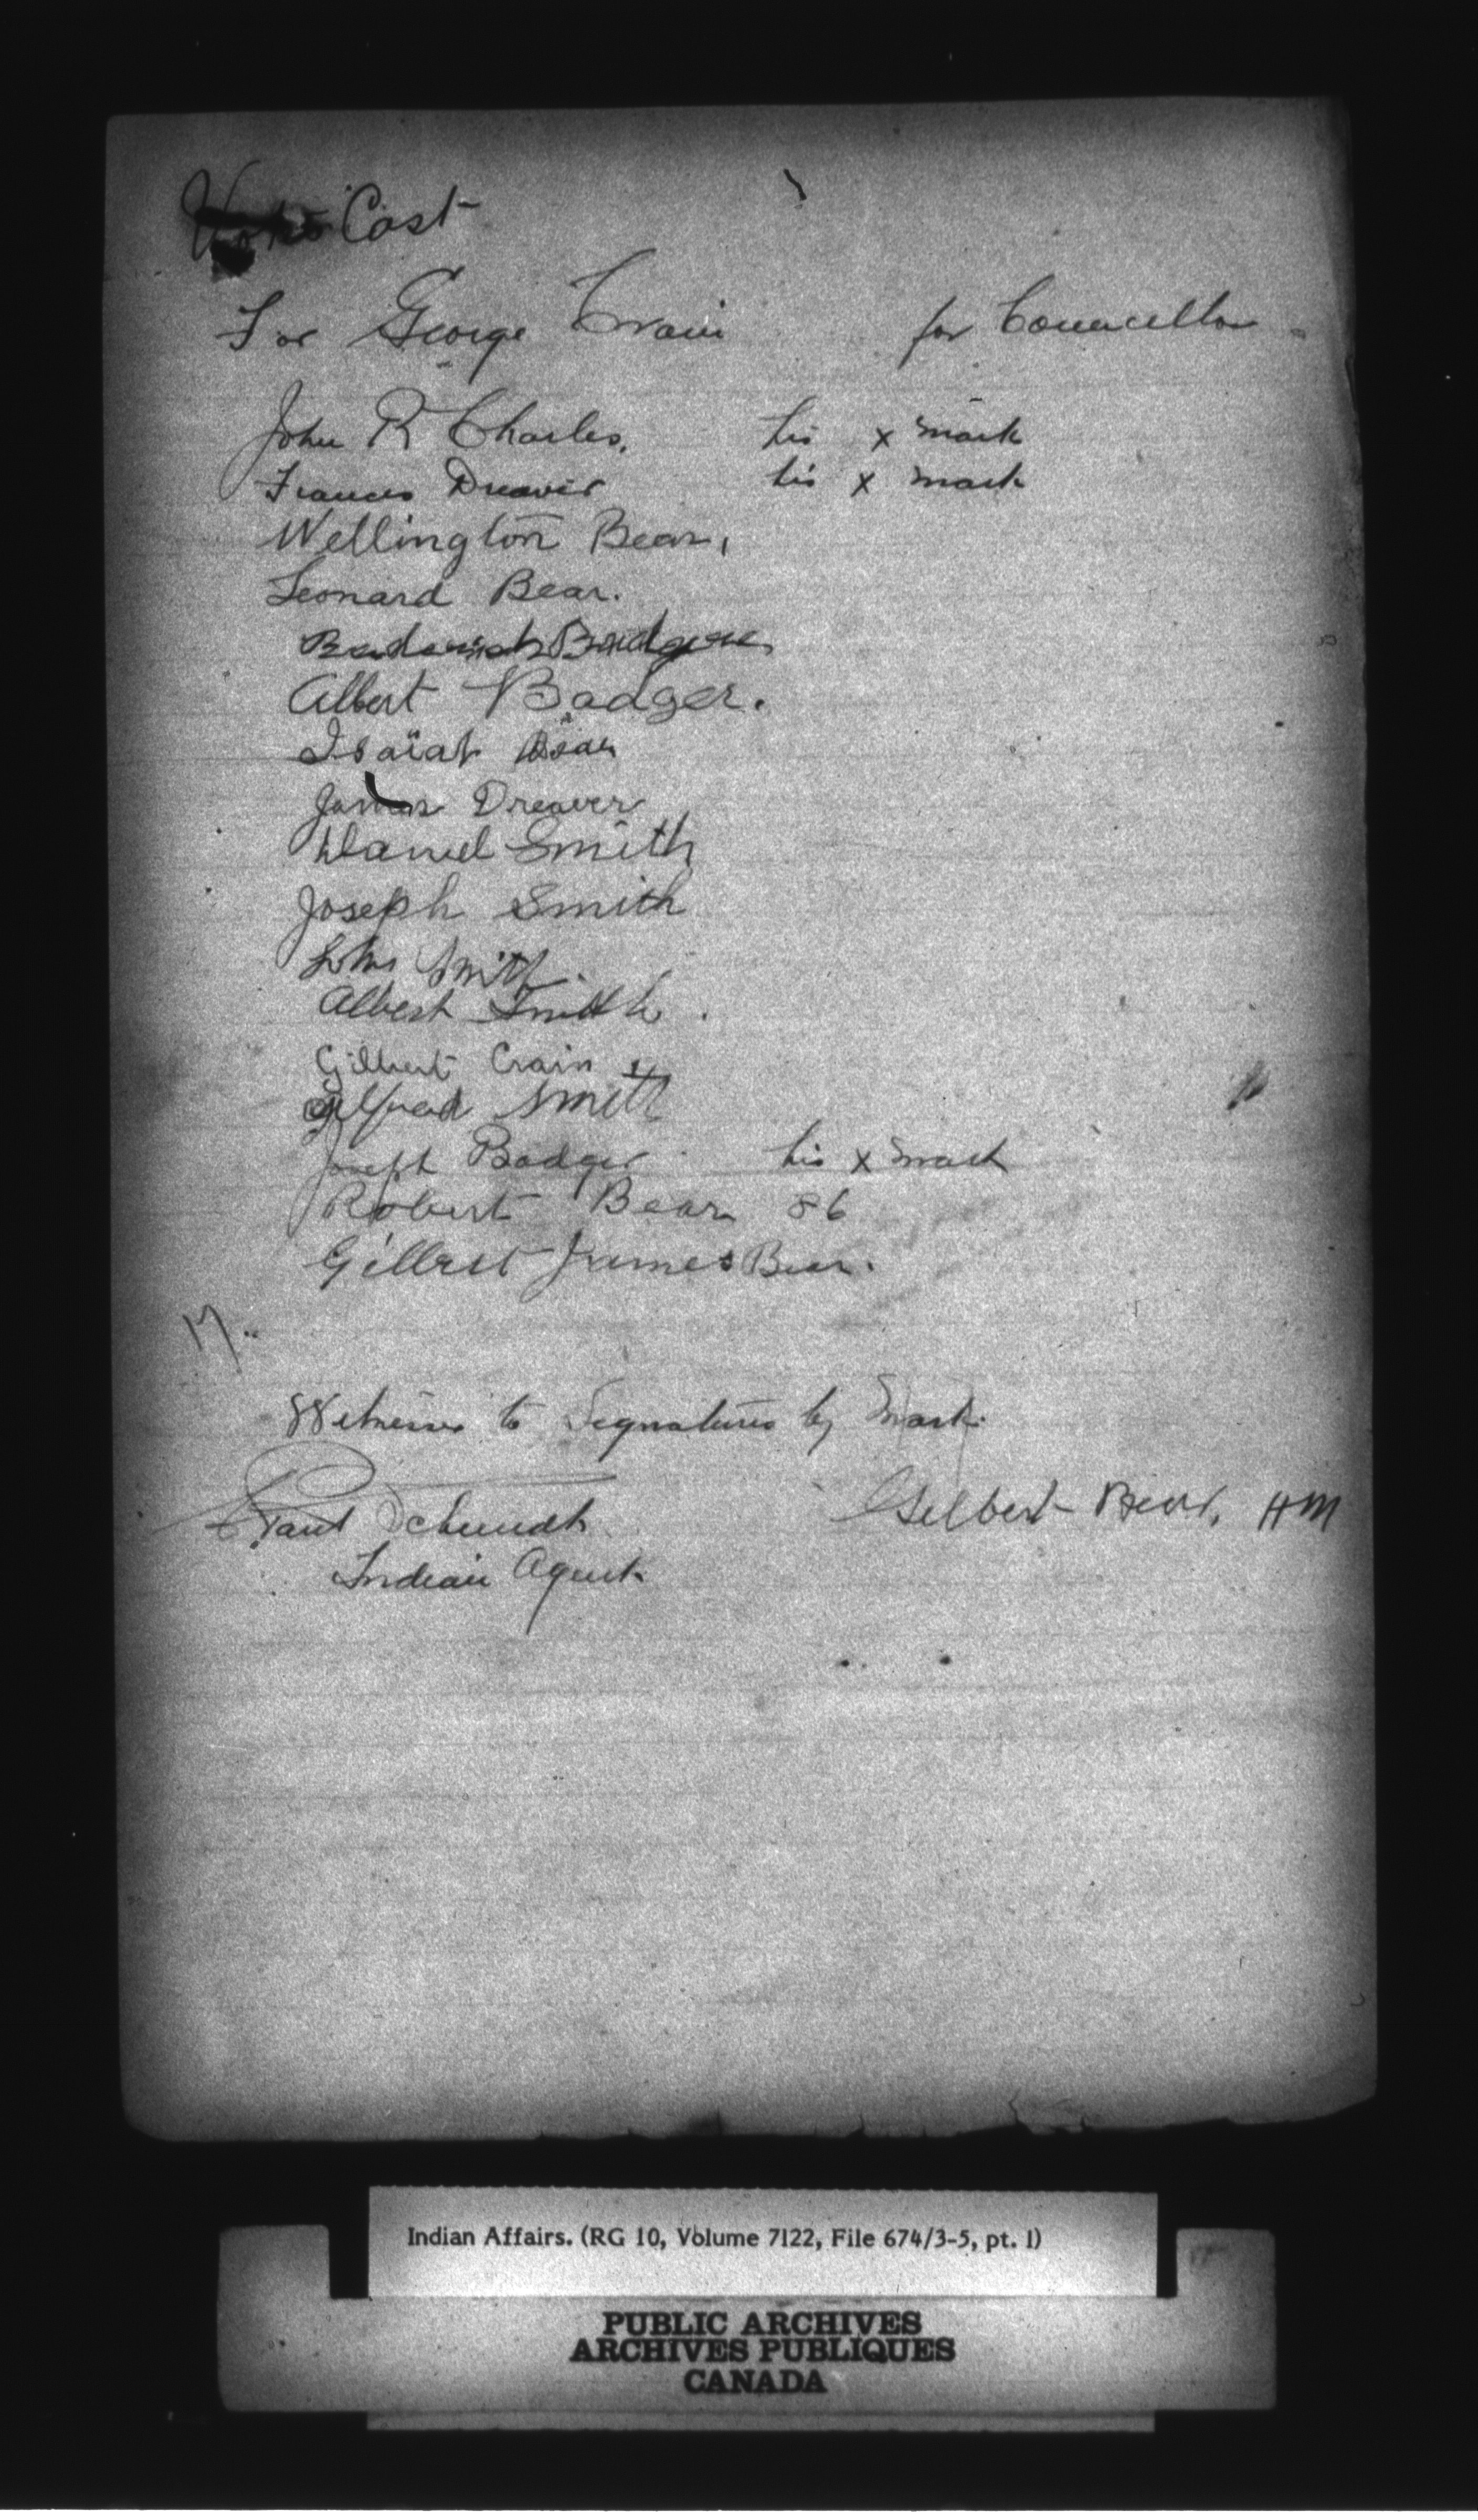 Votes Cast
For George Crain for Councellor
John R Charles, his x mark
Frances Dreaver his x mark
Wellington Bear,
Leonard Bear.
Badger
Albert Badger.
Isaiah Bear
James Dreaver
Daniel Smith
Joseph Smith
John Smith.
Albert Smith.
Gilbert Crain
Alfred Smith
Joseph Badger his x mark
Robert Bear 86
Gilbert James Bear.
17.
Witnesses to Signatures by Mark.
Schmidt Gilbert Bear, HM
Indian Agent
Indian Affairs. (RG 10, Volume 7122, File 674/3-5, pt. 1)
PUBLIC ARCHIVES
ARCHIVES PUBLIQUES
CANADA